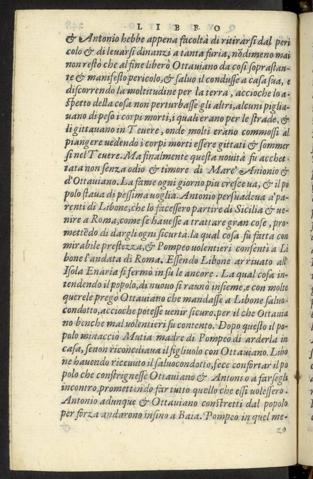 LIBRO
& Antonio hebbe appena facoltà di ritirarsi dal peri
colo & di leuarsi dinanzi a tanta furia, nōdimeno mai
non restò che al fine liberò Ottauiano da cosi soprastan-
te & manifesto pericolo, & saluo il condusse a casa sua, e
discorrendo la moltitudine per la terra, accioche lo a-
spetto della cosa non perturbasse gli altri, alcuni piglia-
uano di peso i corpi morti, i quali erano per le strade, &
li gittauano in Teuere, onde molti erano commossi al
piangere uedendo i corpi morti essere gittati & sommer
si nel Teuere. Ma finalmente questa nouità fu acchet-
tata non senza odio & timore di Marc' Antonio &
d'Ottauiano. La fame ogni giorno piu cresceua, & il po
polo staua di pessima uoglia. Antonio persuadeua a' pa-
renti di Libone, che lo facessero partire di Sicilia & ue-
nire a Roma, come se hauesse a trattare gran cose, pro-
mettēdo di dargli ogni sicurtà. la qual cosa fu fatta con
mirabile prestezza, & Pompeo uolentieri consentì a Li
bone l'andata di Roma. Essendo Libone arriuato all'
Isola Enaria si fermò in su le ancore. La qual cosa in-
tendendo il popolo, di nuouo si raunò insieme, e con molte
querele pregò Ottauiano che mandasse a Libone saluo-
condotto, accioche potesse uenir sicuro. per il che Ottauia
no benche mal uolentieri fu contento. Dopo questo il po-
polo minacciò Mutia madre di Pompeo di arderla in
casa, se non riconciliaua il figliuolo con Ottauiano. Libo
ne hauendo riceuuto il saluocondotto, fece confortar il po
polo che constrignesse Ottauiano & Antonio a farsegli
incontro, promettendo far tutto quello che essi uolessero.
Antonio adunque & Ottauiano constretti dal popolo
per forza andarono insino a Baia. Pompeo in quel me-